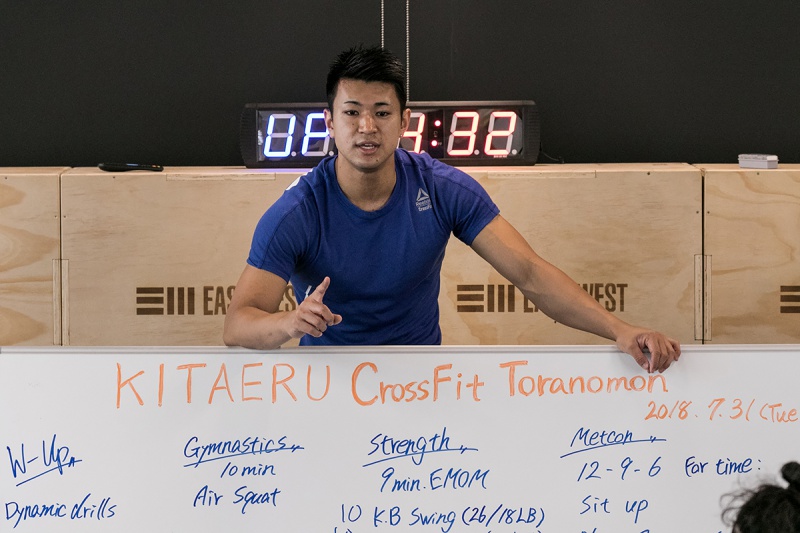 32
Reebok
CrossFit
WEST
KITAERU CrossFit Toranomon
2018.7.31 (Tue
W-Up
Dynamic drills
Gymnastics
10min
Air Squat
Strength
9min. EMOM
10 K.B Swing (26/18LB)
Metcon
12-9-6 For time:
Sit up